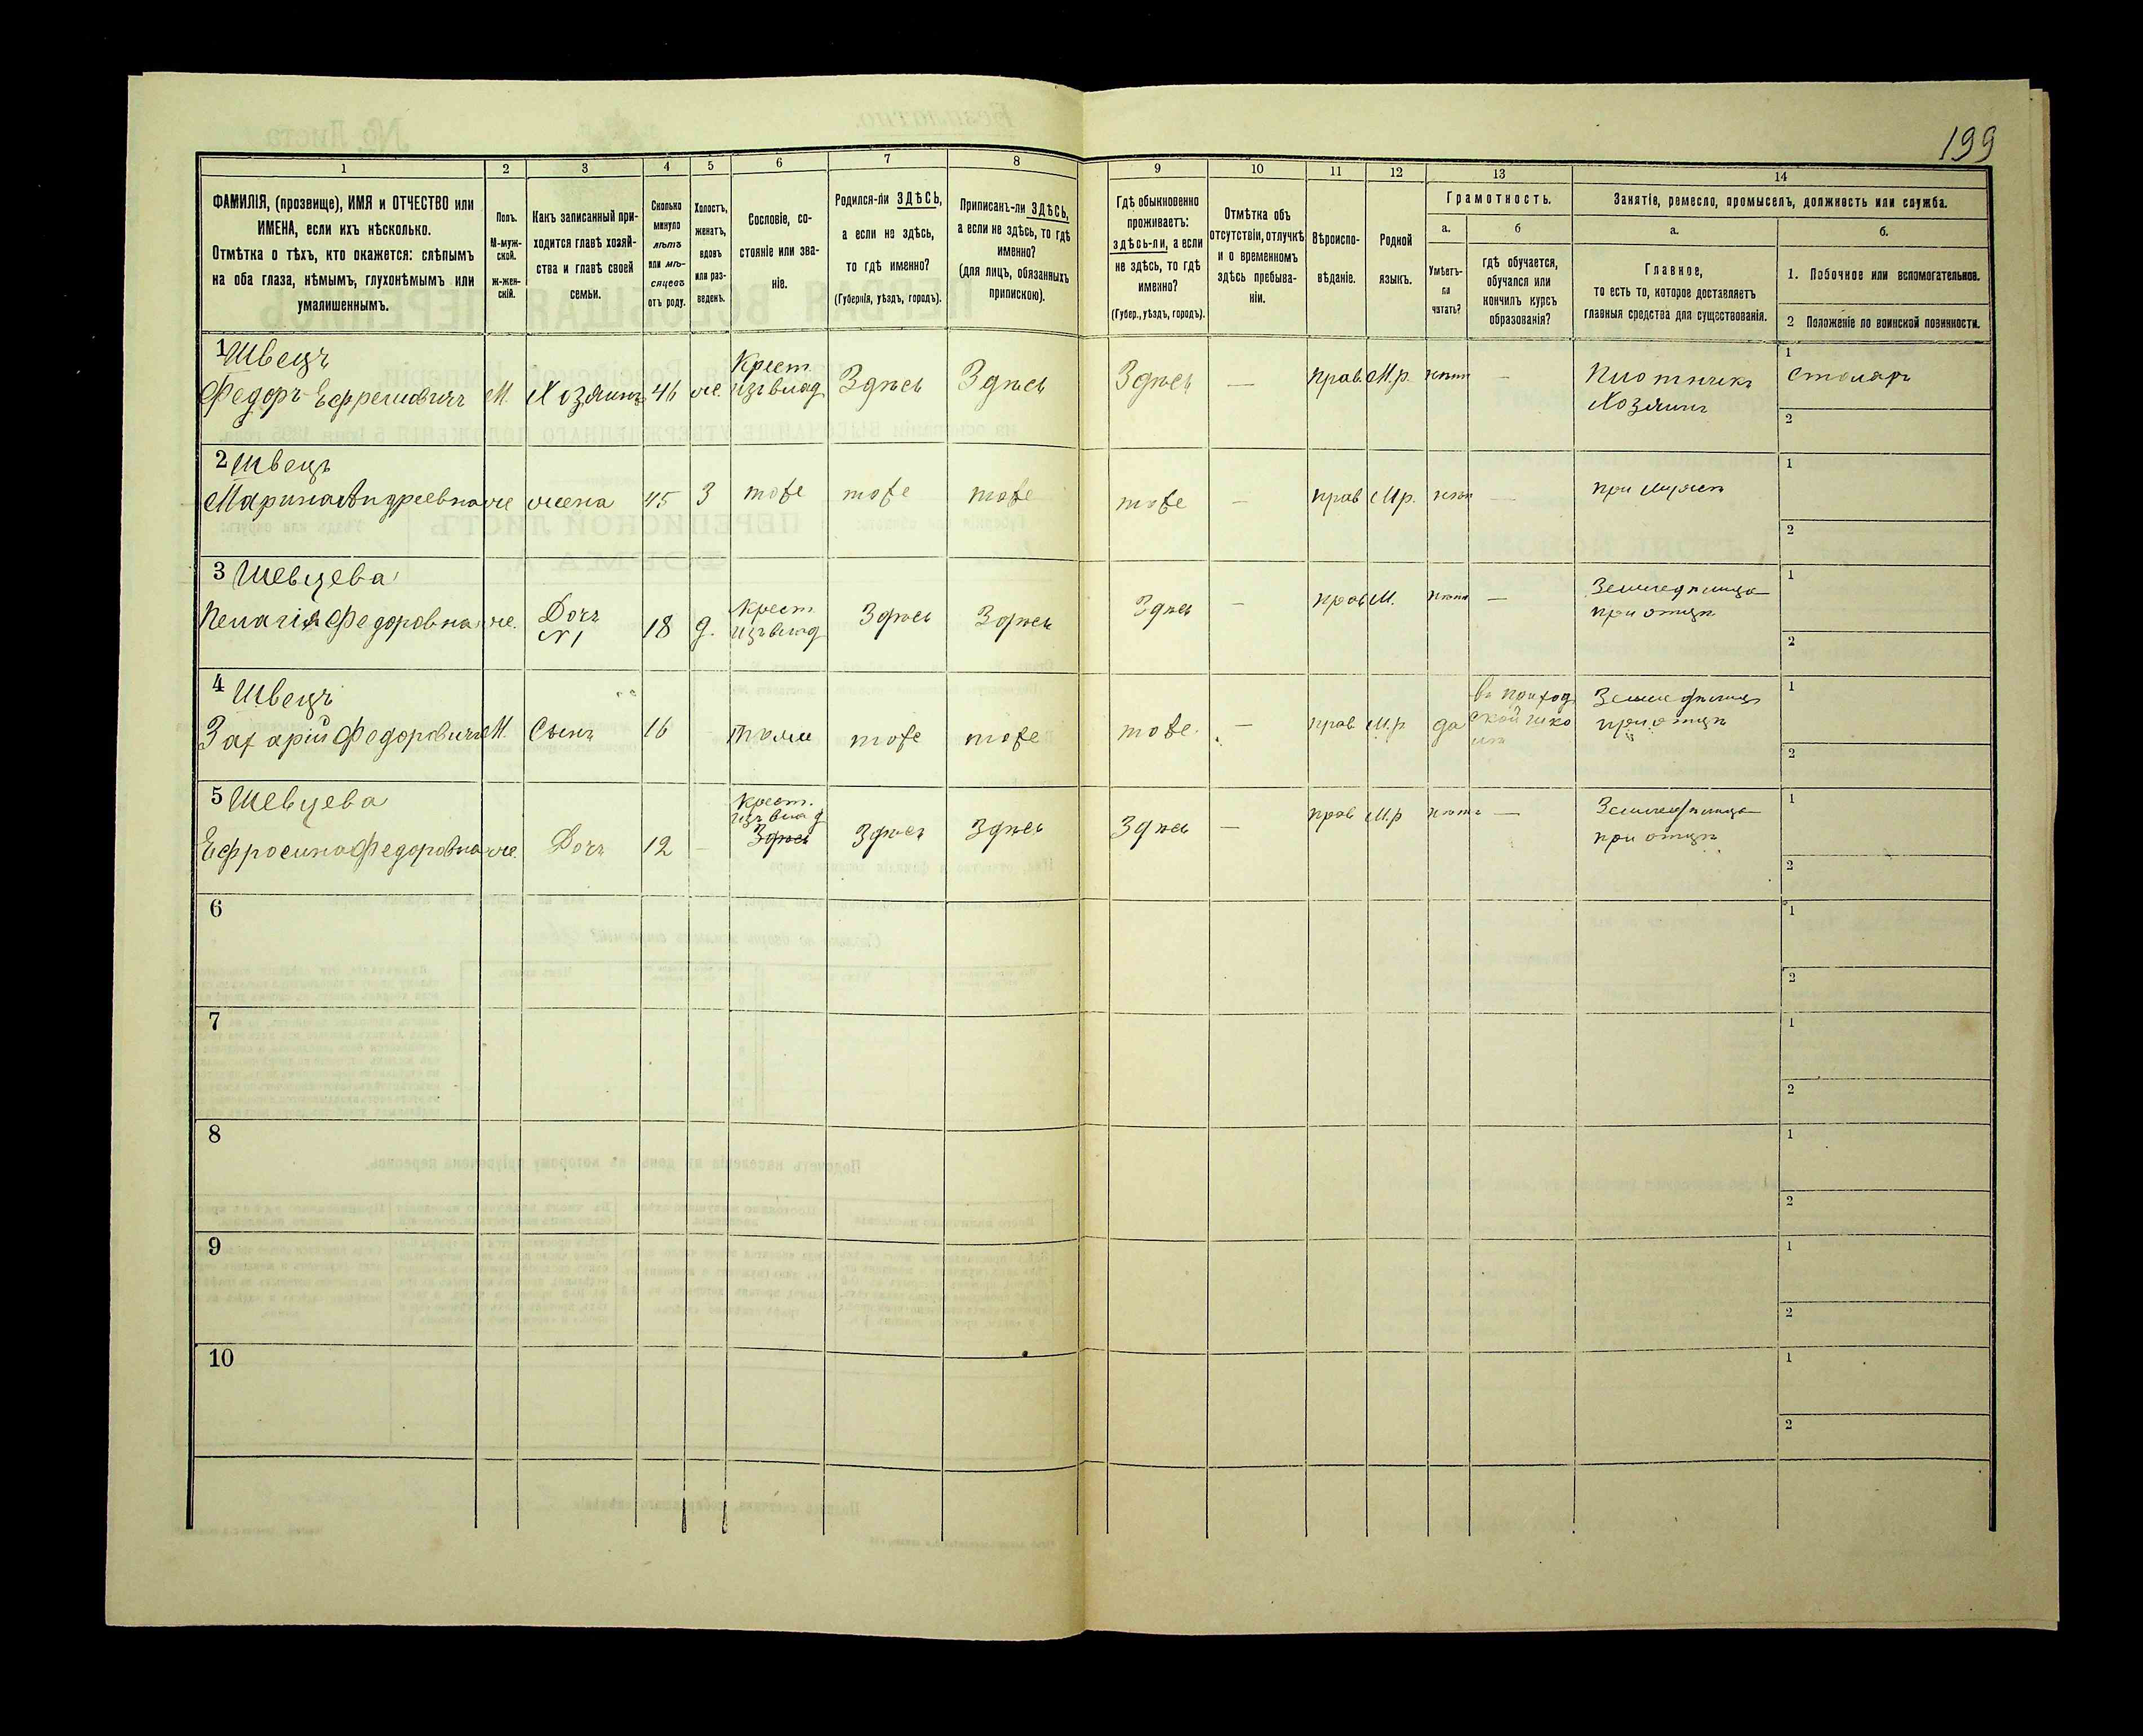 199
1
2
3
4
5
6
7
8
9
10
11
12
13
14
ФАМИЛІЯ, (прозвище), ИМЯ и ОТЧЕСТВО или
ИМЕНА, если ихъ нѣсколько.
Отмѣтка о тѣхъ, кто окажется: слѣпымъ
на оба глаза, нѣмымъ, глухонѣмымъ или
умалишеннымъ.
Полъ.
М-муж-
ской.
ж-жен-
скій.
Какъ записанный при-
ходится главѣ хозяй-
ства и главѣ своей
семьи.
Сколько
минуло
лѣтъ
или мѣ-
сяцевъ
отъ роду.
Холостъ,
женатъ,
вдовъ
или раз-
веденъ.
Сословіе, со-
стояніе или зва-
ніе.
Родился-ли ЗДѢСЬ,
а если не здѣсь,
то гдѣ именно?
(Губернія, уѣздъ, городъ).
Приписанъ-ли ЗДѢСЬ,
а если не здѣсь, то гдѣ
именно?
(для лицъ, обязанныхъ
припискою).
Гдѣ обыкновенно
проживаетъ:
здѣсь-ли, а если
не здѣсь, то гдѣ
именно?
(Губер., уѣздъ, городъ).
Отмѣтка объ
отсутствіи, отлучкѣ
и о временномъ
здѣсь пребыва-
ніи.
Вѣроиспо-
вѣданіе.
Родной
языкъ.
Грамотность.
а.
б
Умѣетъ-
ли
читать?
гдѣ обучается,
обучался или
кончилъ курсъ
образованія?
Занятіе, ремесло, промыселъ, должность или служба.
а.
б.
Главное,
то есть то, которое доставляетъ
главныя средства для существованія.
1. Побочное или вспомогательное.
2 Положеніе по воинской повинности.
1 Швецъ
Федоръ Ефремовичъ М. Хозяинъ 46 ж. Крест.
изъ влад Здѣсь Здѣсь Здѣсь — прав. М.р. нѣтъ — Плотникъ
Хозяинъ
1 Столяръ
2
2 Швецъ
Марина Андреевна ж жена 45 З тоже тоже тоже тоже — прав М.р. нѣтъ — при мужѣ
1
2
3 Шевцева
Пелагія Федоровна ж. Дочь
№1 18 д. Крест
изъ влад Здѣсь Здѣсь Здѣсь — прав М. нѣтъ — Земледѣлица
при отцѣ
1
2
4 Швецъ
Захарій Федоровичъ М. Сынъ 16 - тоже тоже тоже — прав М.р да въ приход
ской шко
лѣ
при отцѣ
1
2
5 Шевцева
Ефросина Федоровна ж. Дочь 12 — Крест.
изъ влад
Здѣсь Здѣсь Здѣсь Здѣсь — прав М.р нѣтъ — Земледѣлица
при отцѣ
1
2
6
1
2
7
1
2
8
1
2
9
1
2
10
1
2